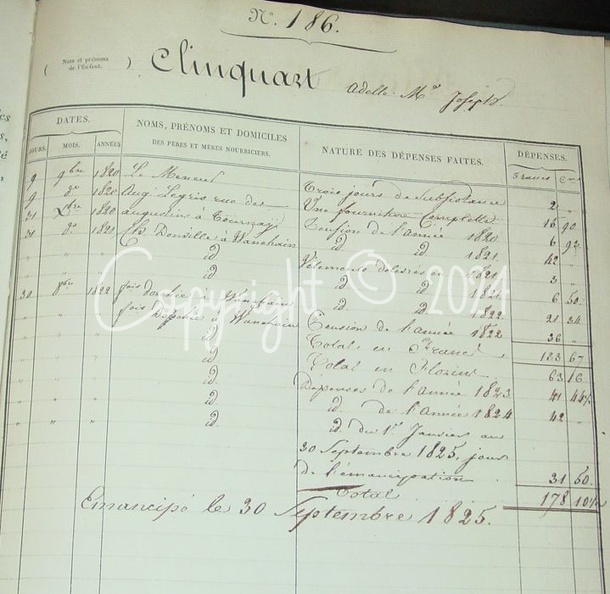 N.º 186.
( Nom et prénoms de l'Enfant. ) Clinquart Adelle Mie Joseph
DATES. NOMS, PRÉNOMS ET DOMICILES DES PÈRES ET MÈRES NOURRICIERS. NATURE DES DÉPENSES FAITES. DÉPENSES.
JOURS. MOIS. ANNÉES Francs Cmes
9 9bre 1820 Trois jours de Subsistance 2 "
9 do 1820 Aug. Legris rue des Une fourniture Complette 16 90
31 Xbre 1820 augustins à Tournay Pension de l'année 1820 6 92
31 do 1821 à Wannehain id id 1821 42 "
" " " id Vêtements 1821 3 "
" " " id id id 1821 6 50
30 1822 à Wannehain id id 1822 21 34
" " " à Wannehain Pension de l'année 1822 36 "
" " " id Total en Francs 133 67
" " " id Total en Florins 63 16
" " " id Dépenses de l'année 1823 41 44½
" " " id id de l'Année 1824 42 "
" " " id id du 1er Janvier au
30 Septembre 1825, jour
de l'émancipation 31 50
Total 178 10½
Emancipé le 30 Septembre 1825.
Copyright © 2014